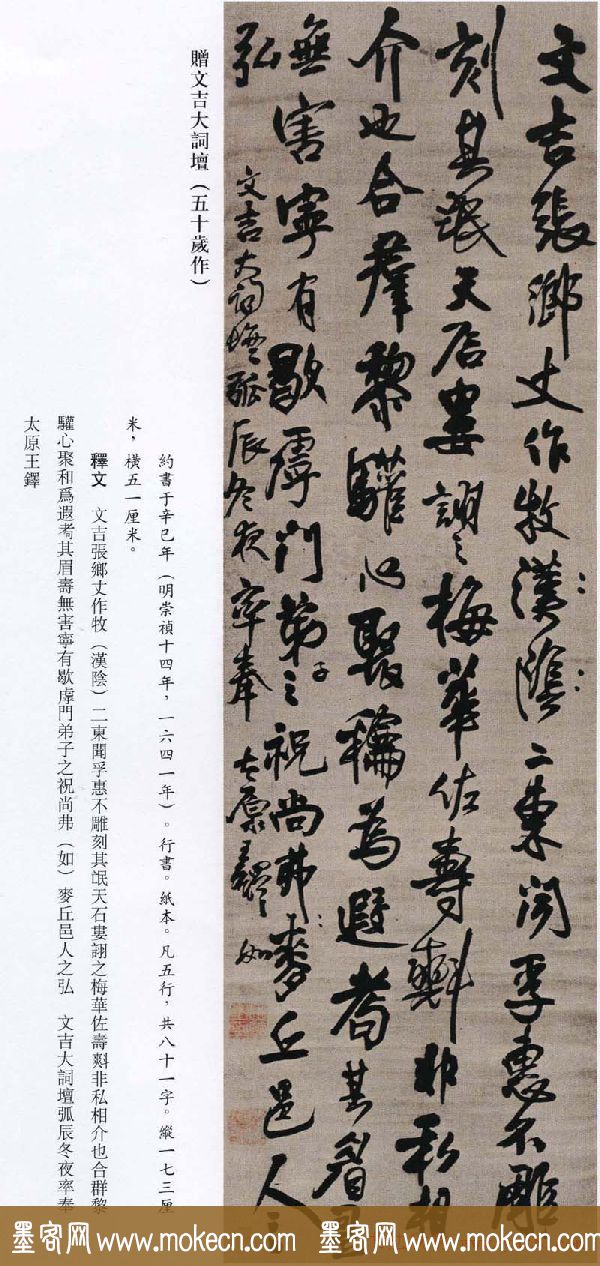 文吉張鄉丈作牧漢陰二東聞孚惠不雕
刻其氓天石婁詡之梅華佐壽斞非私相
介也合群黎驩心聚龢為遐耇其眉壽
無害寧有歇虖門弟子之祝尚弗麥丘邑人之
弘 文吉大詞壇弧辰冬夜率奉 太原王鐸 如
贈文吉大詞壇（五十歲作）
約書于辛巳年（明崇禎十四年，一六四一年）。行書。紙本。凡五行，共八十一字。縱一七三厘
米，橫五一厘米。
釋文 文吉張鄉丈作牧（漢陰）二東聞孚惠不雕刻其氓天石婁詡之梅華佐壽斞非私相介也合群黎
驩心聚和爲遐耇其眉壽無害寧有歇虖門弟子之祝尚弗（如）麥丘邑人之弘 文吉大詞壇弧辰冬夜率奉
太原王鐸
墨客网 www.mokecn.com 墨客网 www.mokecn.com